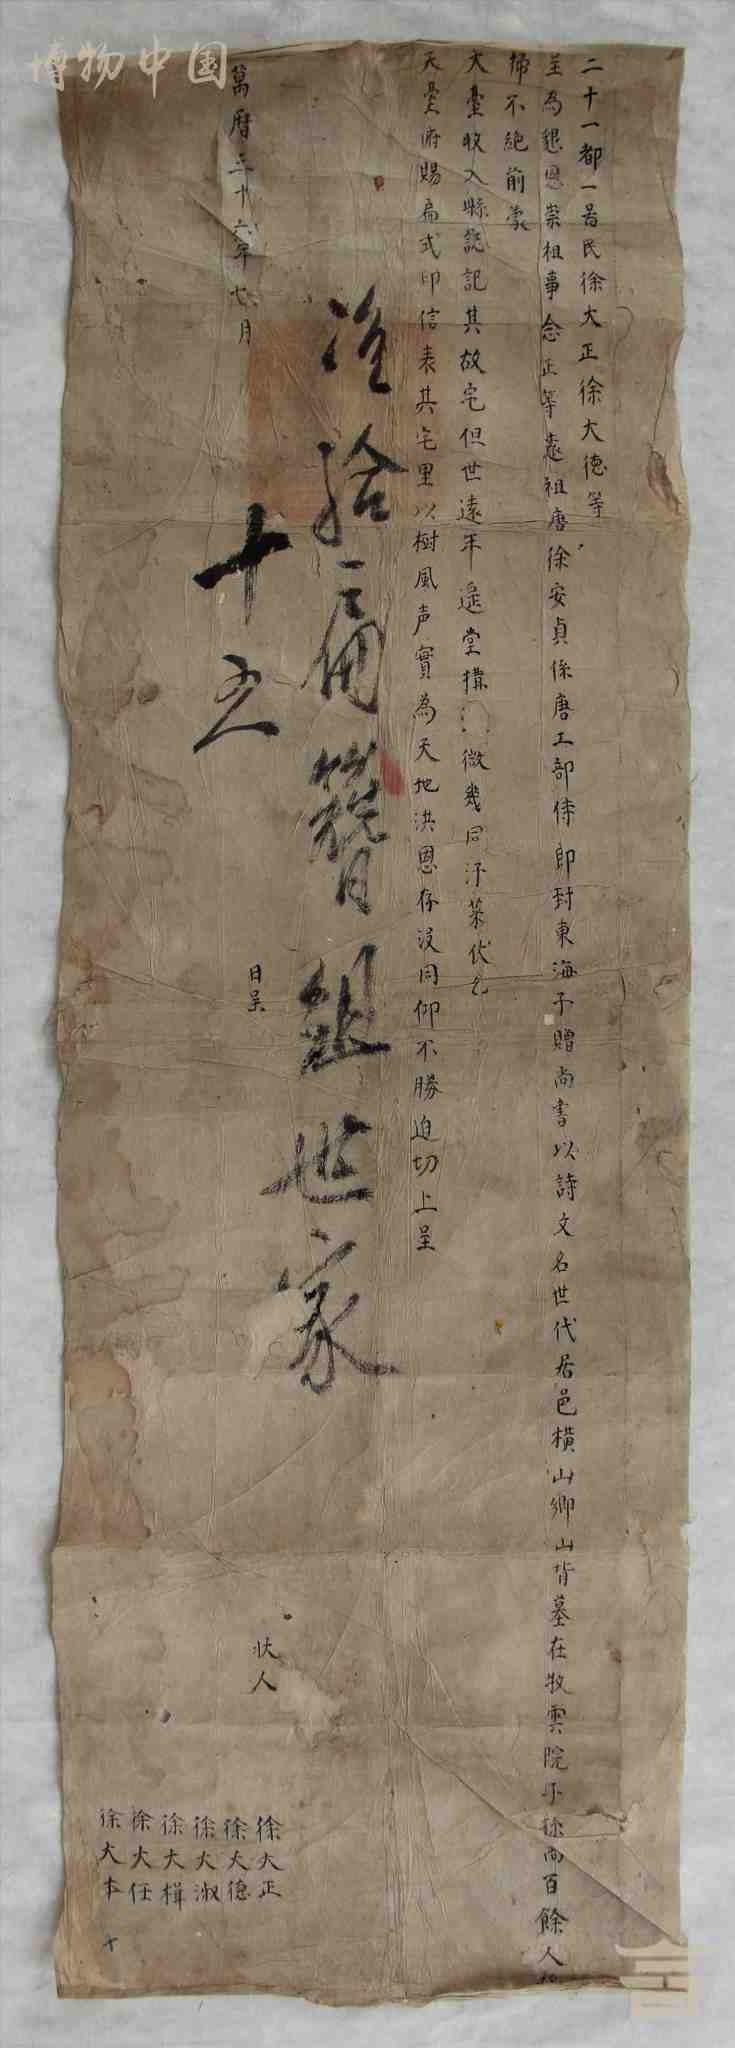 博物中国
二十一都一啚民徐大正徐大德等
呈為懇恩崇祖事念正等遠祖唐徐安貞係唐工部侍郎封東海子贈尚書以詩文名世代居邑橫山鄉山背墓在牧雲院子孫尚百餘人
掃不絕前蒙
大臺收入縣誌記其故宅但世遠年遥堂搆微幾同汙萊伏乞
天臺府賜扁式印信表其宅里以樹風声實為天地洪恩存没同仰不勝迫切上呈
准給扁簪組世家
十五
萬曆三十六年七月
日呈
狀人
徐大正
徐大德
徐大淑
徐大楫
徐大任
徐大本
十